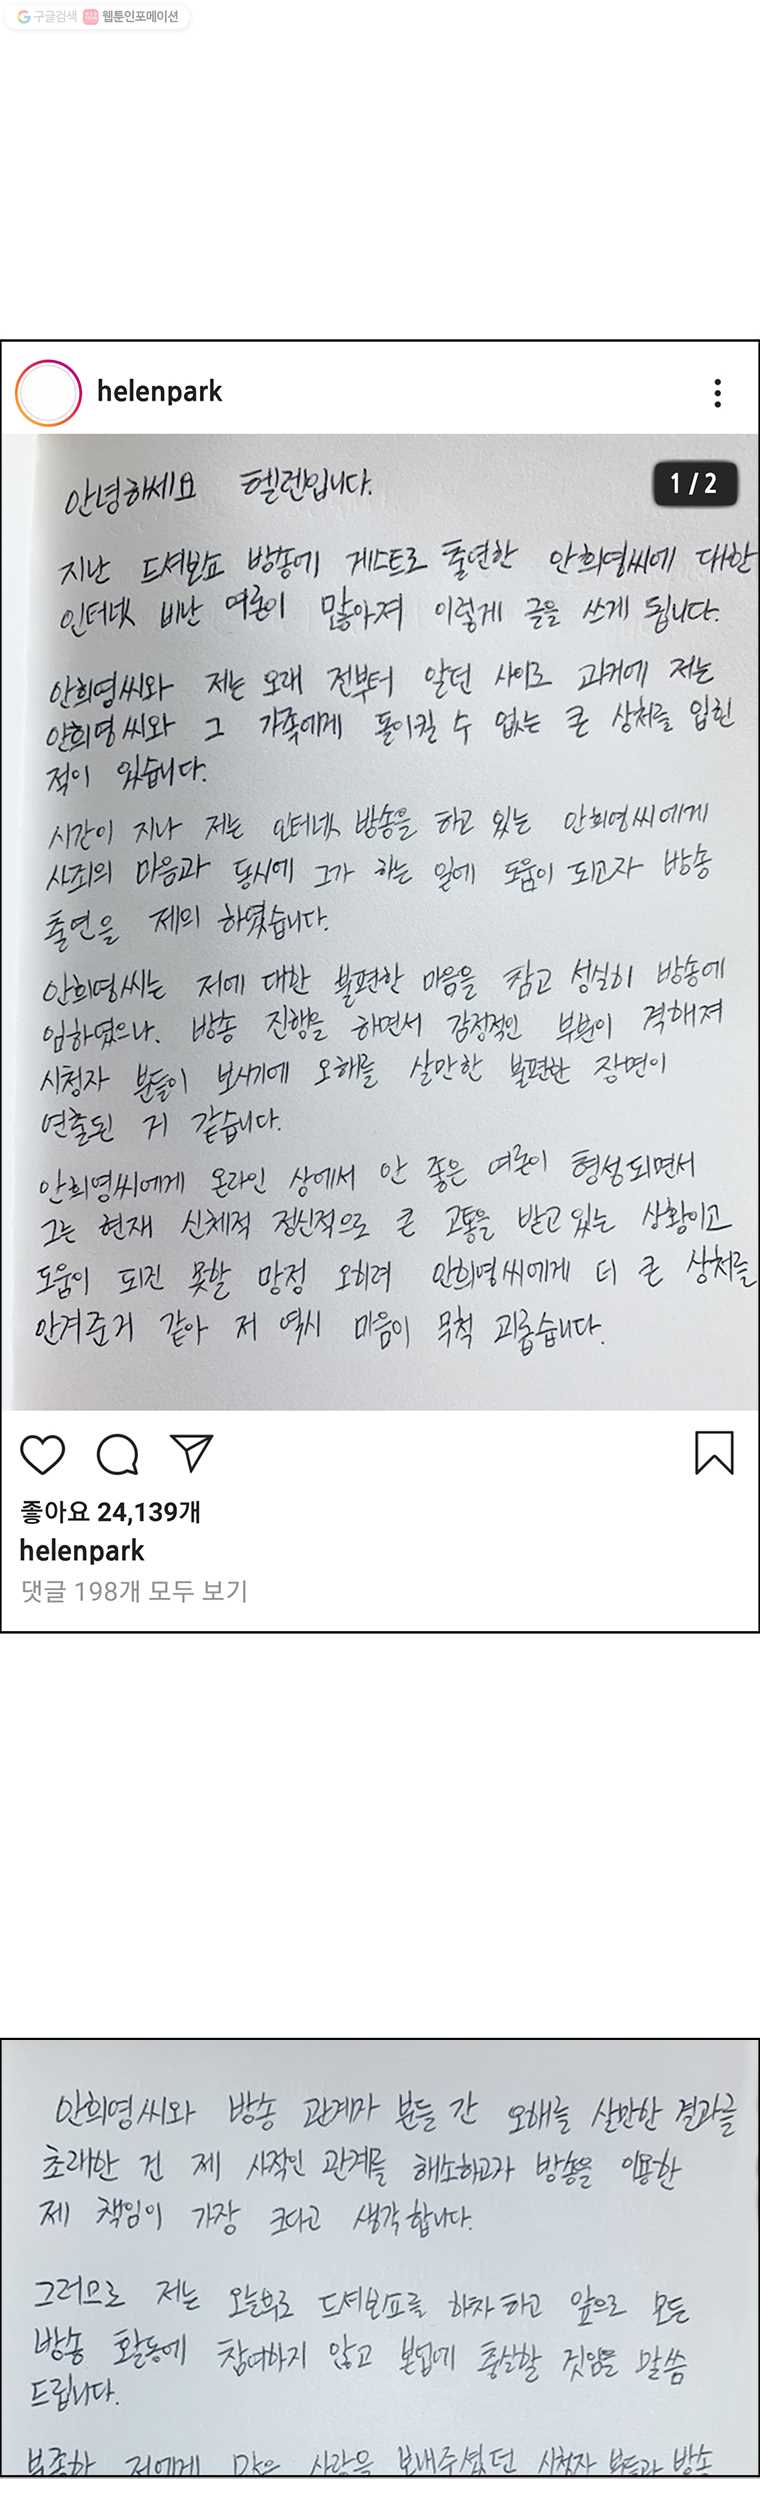 구글검색 웹툰인포메이션
helenpark
1 / 2
안녕하세요 헬렌입니다.
지난 드셔보쇼 방송에 게스트로 출연한 안희영씨에 대한
인터넷 비난 여론이 많아져 이렇게 글을 쓰게 됩니다.
안희영씨와 저는 오래 전부터 알던 사이로 과거에 저는
안희영씨와 그 가족에게 돌이킬 수 없는 큰 상처를 입힌
적이 있습니다.
시간이 지나 저는 인터넷 방송을 하고 있는 안희영씨에게
사죄의 마음과 동시에 그가 하는 일에 도움이 되고자 방송
출연을 제의 하였습니다.
안희영씨는 저에 대한 불편한 마음을 참고 성실히 방송에
임하였으나. 방송 진행을 하면서 감정적인 부분이 격해져
시청자 분들이 보시기에 오해를 살만한 불편한 장면이
연출된 거 같습니다.
안희영씨에게 온라인 상에서 안 좋은 여론이 형성되면서
그는 현재 신체적 정신적으로 큰 고통을 받고 있는 상황이고
도움이 되진 못할 망정 오히려 안희영씨에게 더 큰 상처를
안겨준거 같아 저 역시 마음이 무척 괴롭습니다.
좋아요 24,139개
helenpark
댓글 198개 모두 보기
안희영씨와 방송 관계자 분들 간 오해를 살만한 결과를
초래한 건 제 사적인 관계를 해소하고자 방송을 이용한
제 책임이 가장 크다고 생각합니다.
그러므로 저는 오늘부로 드셔보쇼를 하차하고 앞으로 모든
방송 활동에 참여하지 않고 본업에 충실할 것임을 말씀
드립니다.
부족한 저에게 많은 사랑을 보내주셨던 시청자 분들과 방송